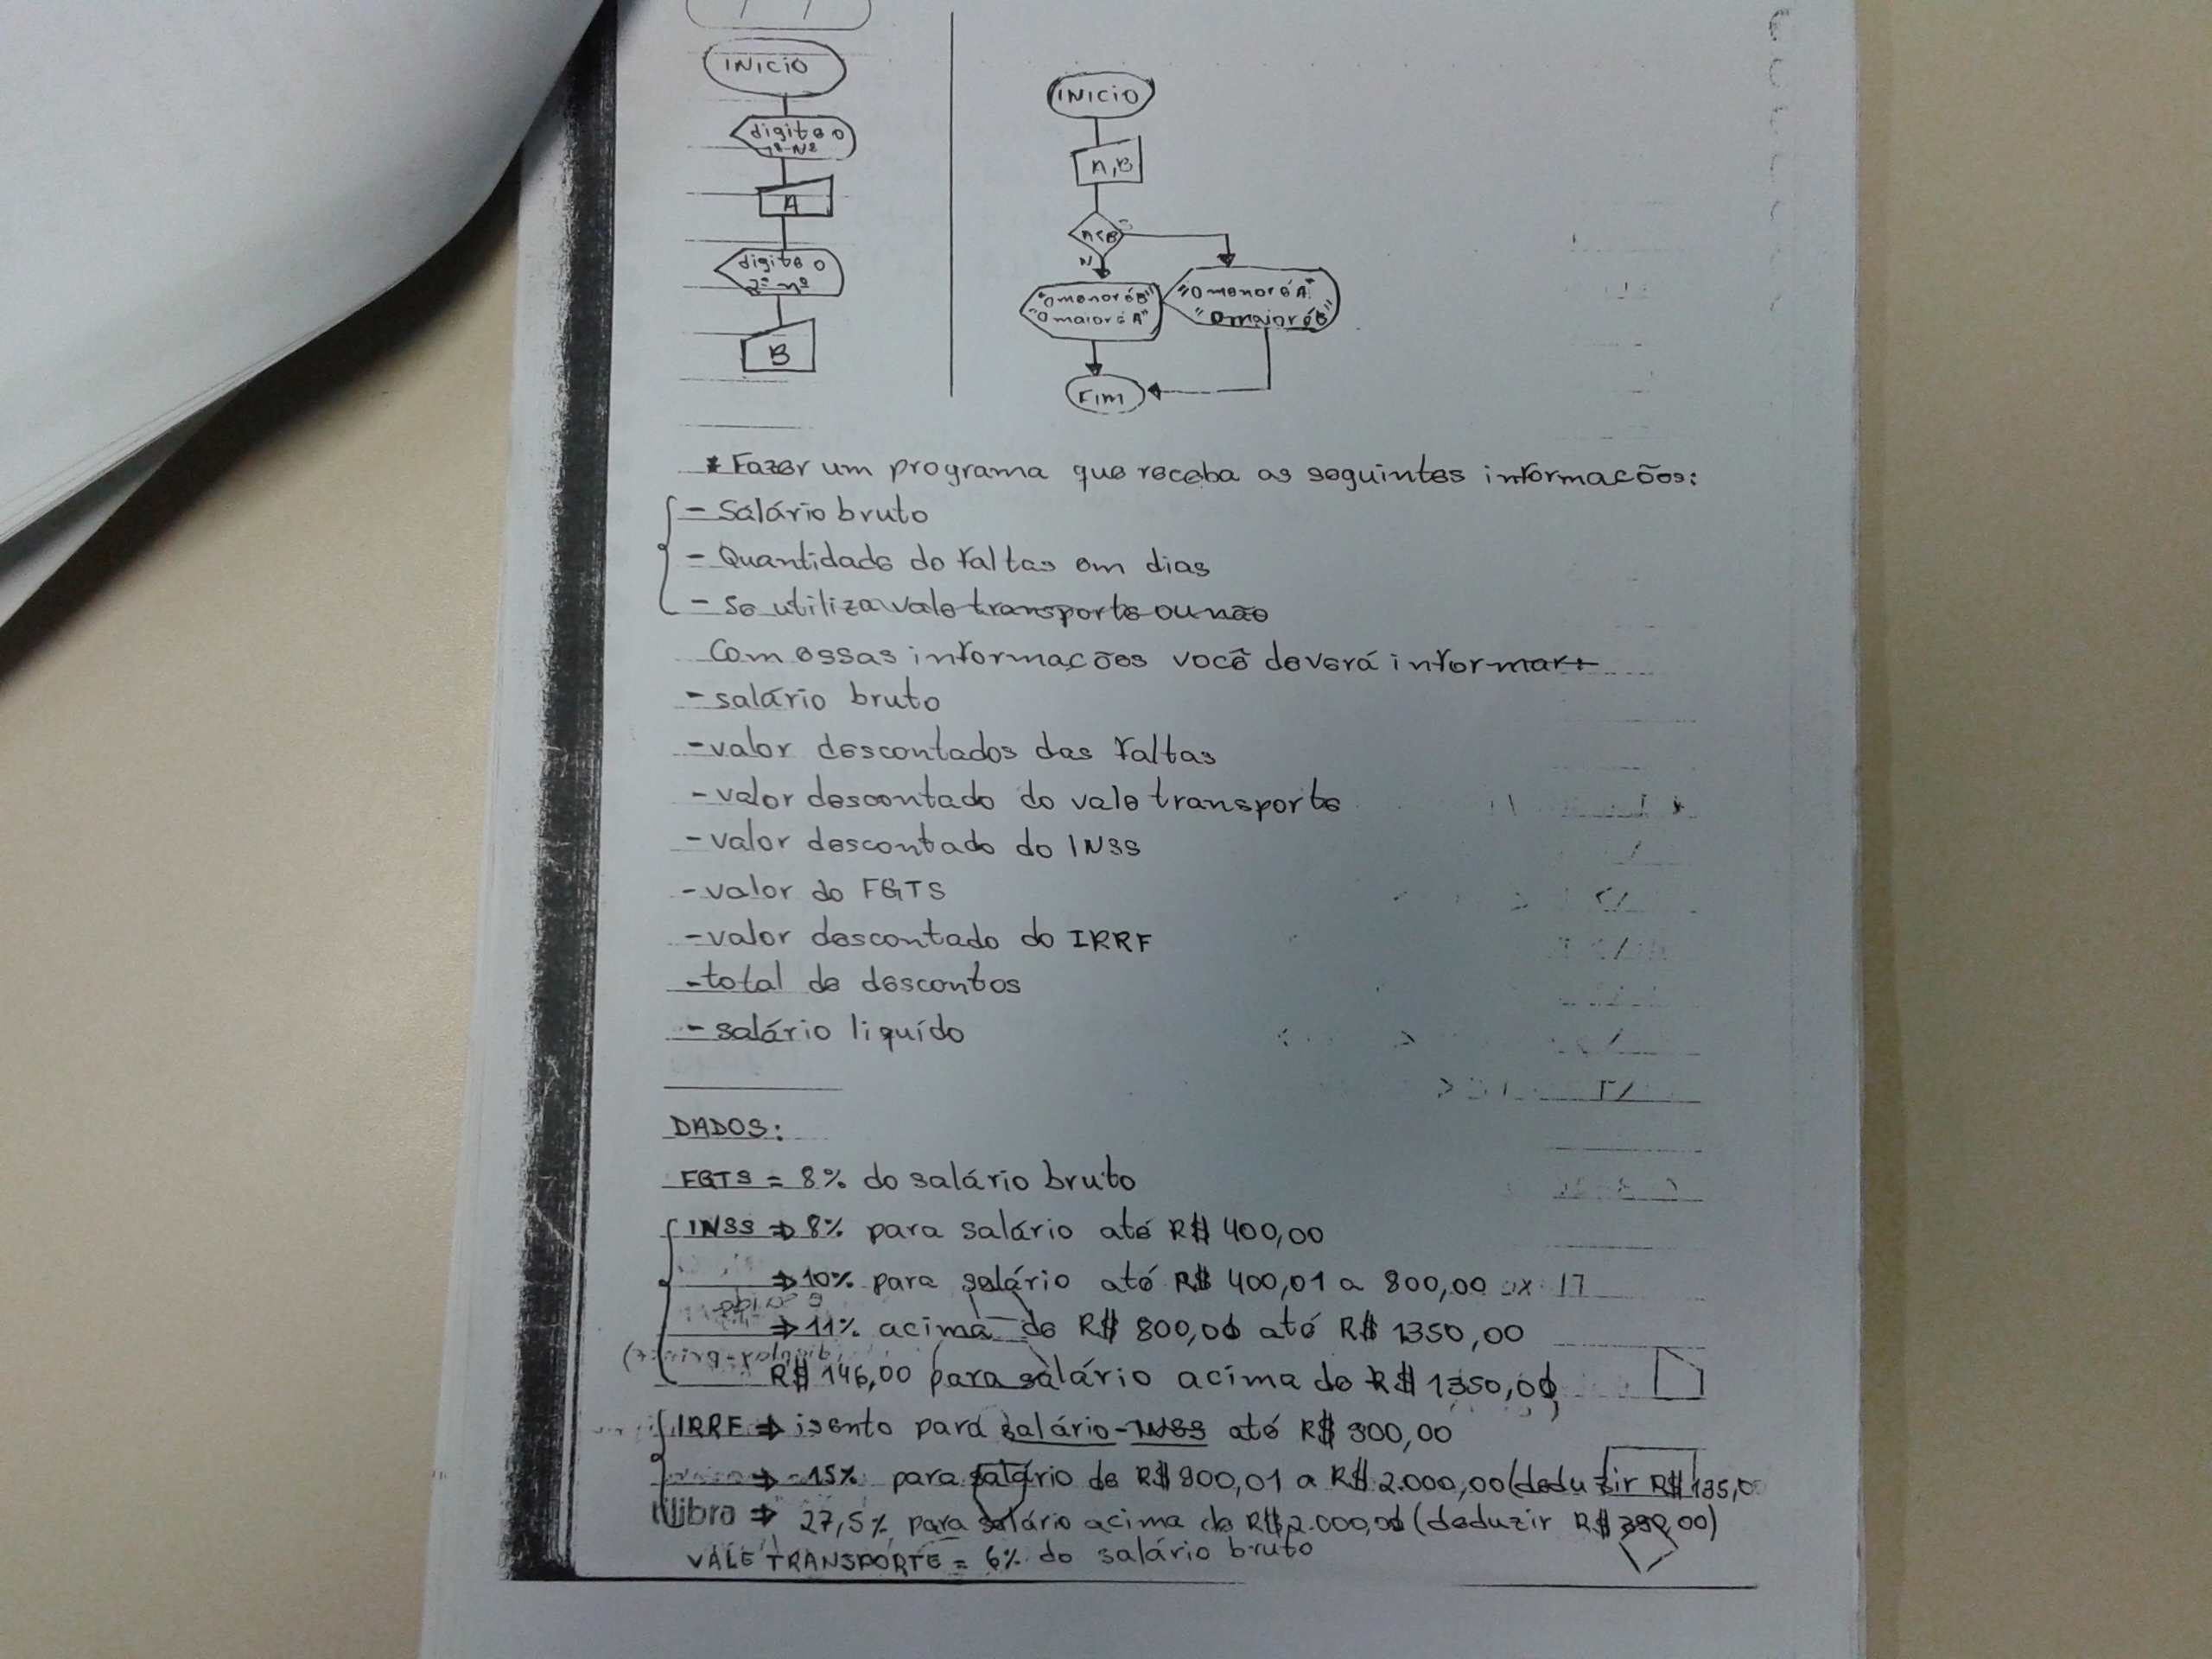 INICIO
digite o
1º Nº
A
digite o
2º nº
B
INICIO
A,B
A<B
S
N
"O menor é B"
"O maior é A"
"O menor é A"
"O maior é B"
Fim
* Fazer um programa que receba as seguintes informações:
- Salário bruto
- Quantidade de faltas em dias
- Se utiliza vale transporte ou não
Com essas informações você deverá informar:
- salário bruto
- valor descontados das faltas
- valor descontado do vale transporte
- valor descontado do INSS
- valor do FGTS
- valor descontado do IRRF
- total de descontos
- salário liquído
DADOS:
FGTS = 8% do salário bruto
INSS ⇒ 8% para salário até R$ 400,00
⇒ 10% para salário até R$ 400,01 a 800,00
⇒ 11% acima de R$ 800,00 até R$ 1350,00
R$ 146,00 para salário acima de R$ 1350,00
IRRF ⇒ isento para salário - INSS até R$ 900,00
⇒ 15% para salário de R$ 900,01 a R$ 2.000,00 (deduzir R$ 135,0
tilibra ⇒ 27,5% para salário acima de R$ 2.000,00 (deduzir R$ 390,00)
VALE TRANSPORTE = 6% do salário bruto